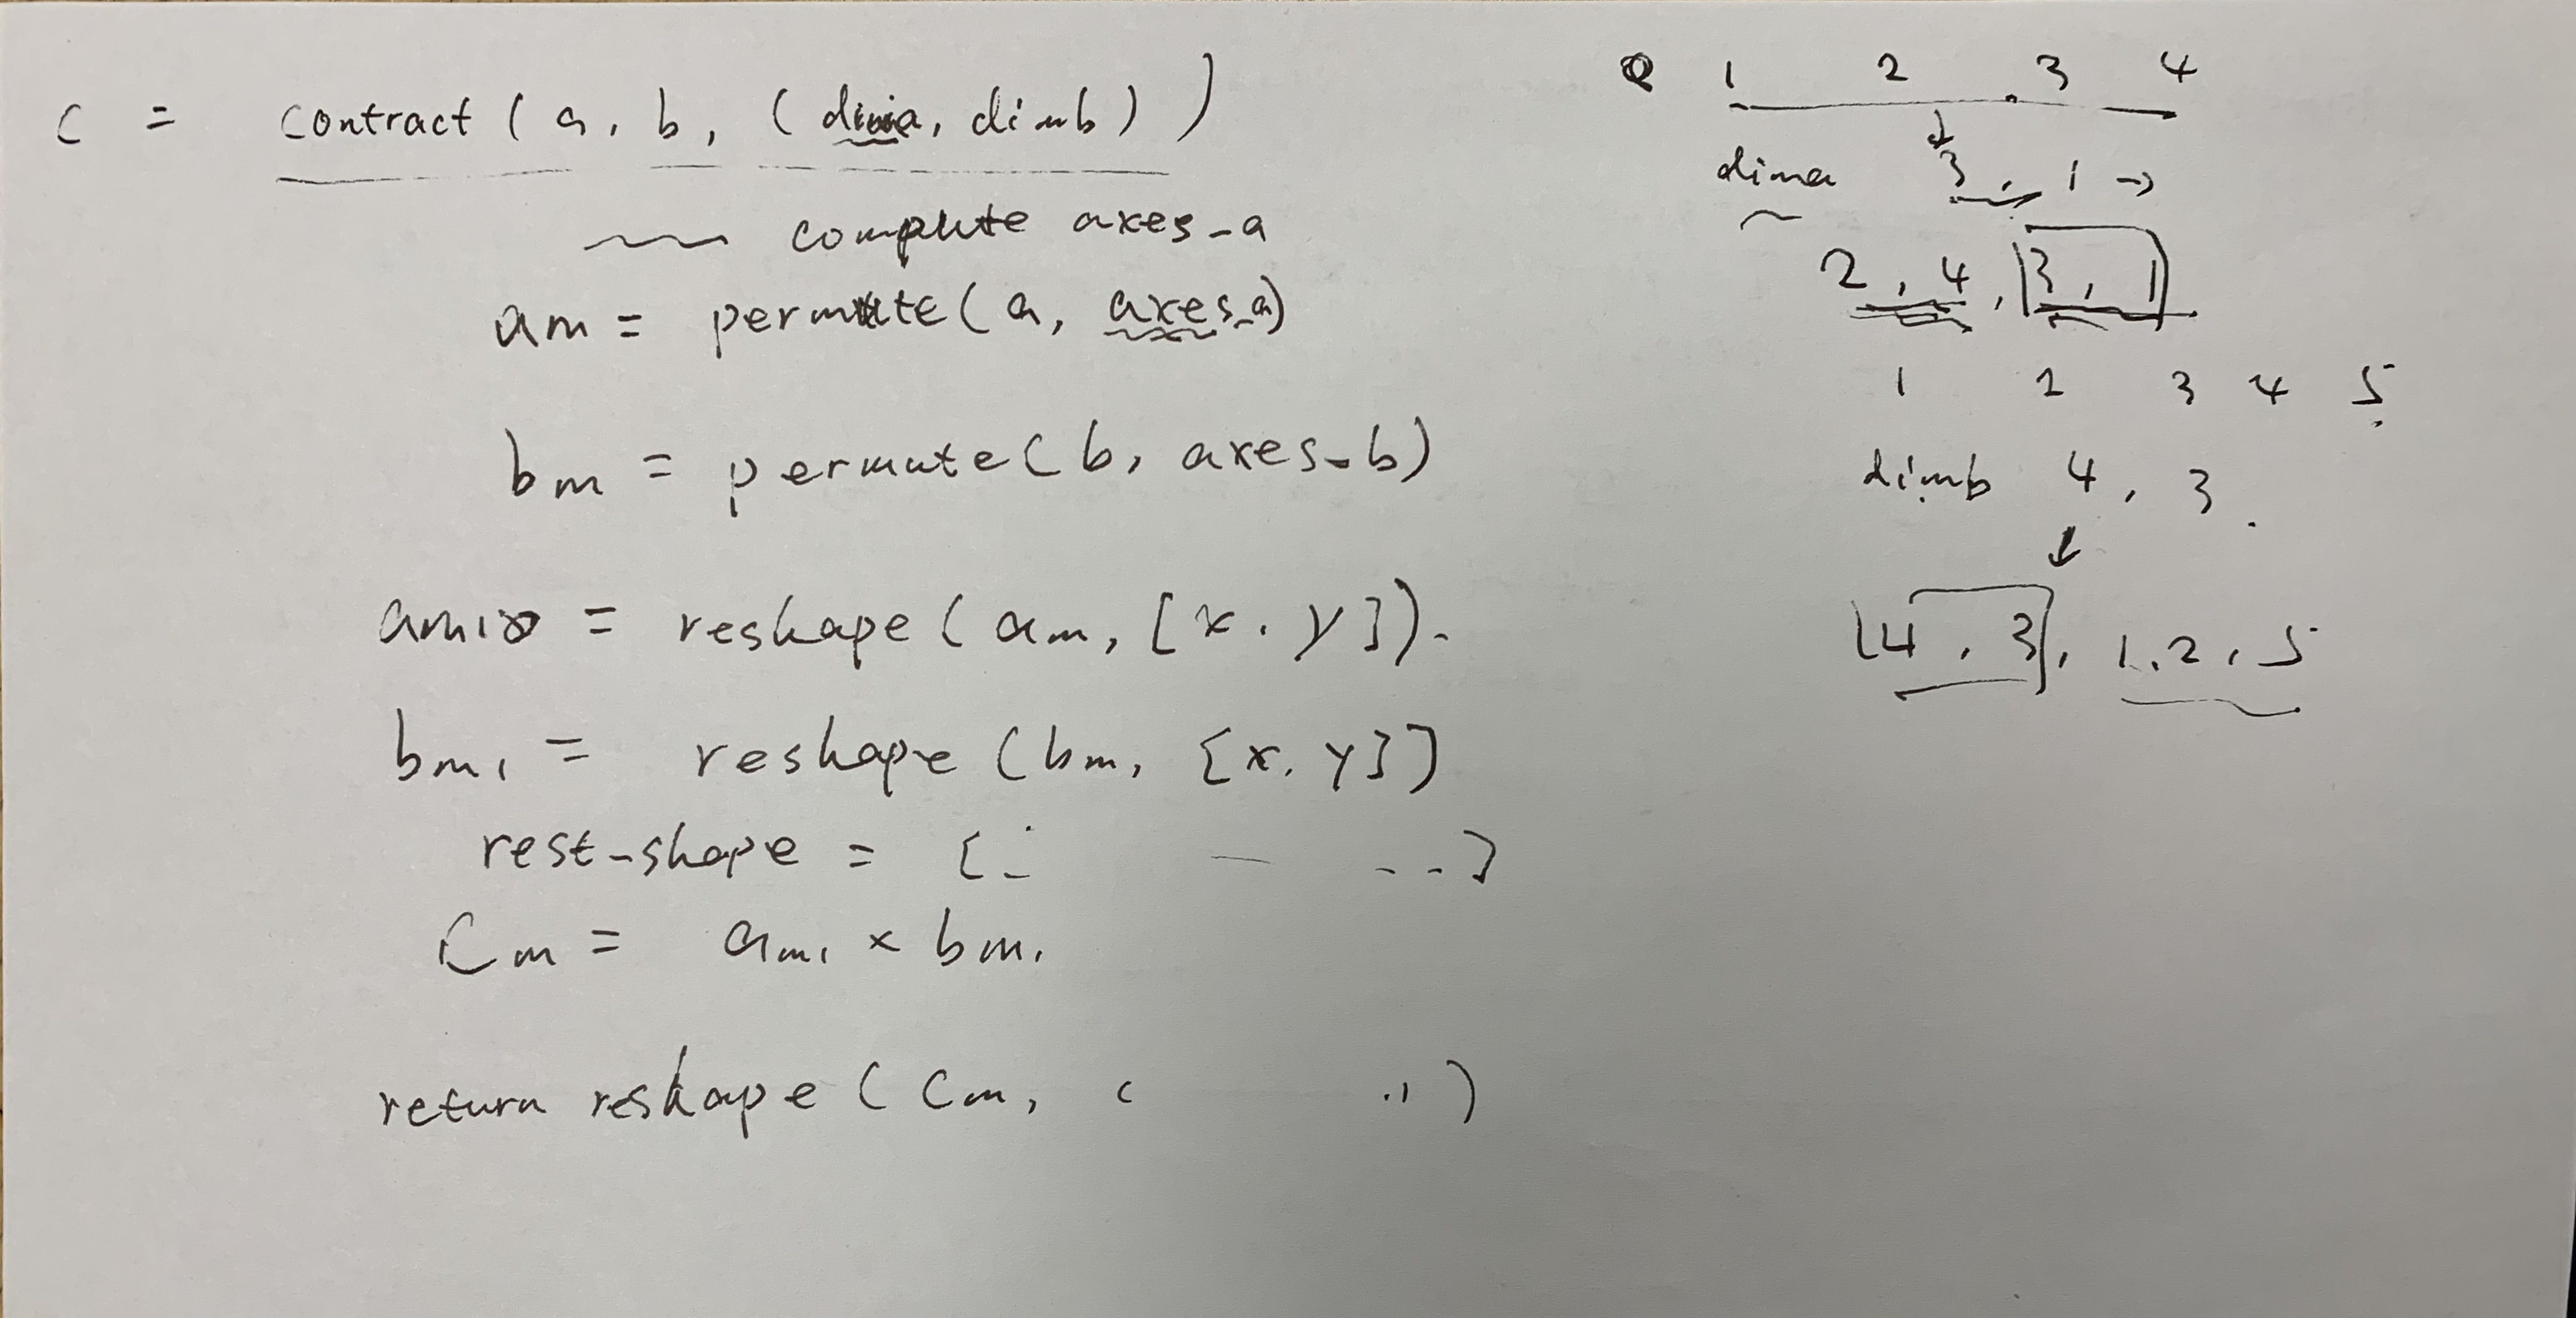 c = contract ( a, b, (dima, dimb) )
compute axes_a
am = permute ( a, axes_a)
bm = permute ( b, axes_b)
am1 = reshape ( am, [x, y]).
bm1 = reshape (bm, [x, y])
rest-shape = [ - ..]
Cm = am1 × bm1
return reshape ( Cm, ( ..)
1 2 3 4
dima 3, 1 →
2, 4, 3, 1
1 2 3 4 5
dimb 4, 3
↓
4, 3, 1, 2, 5